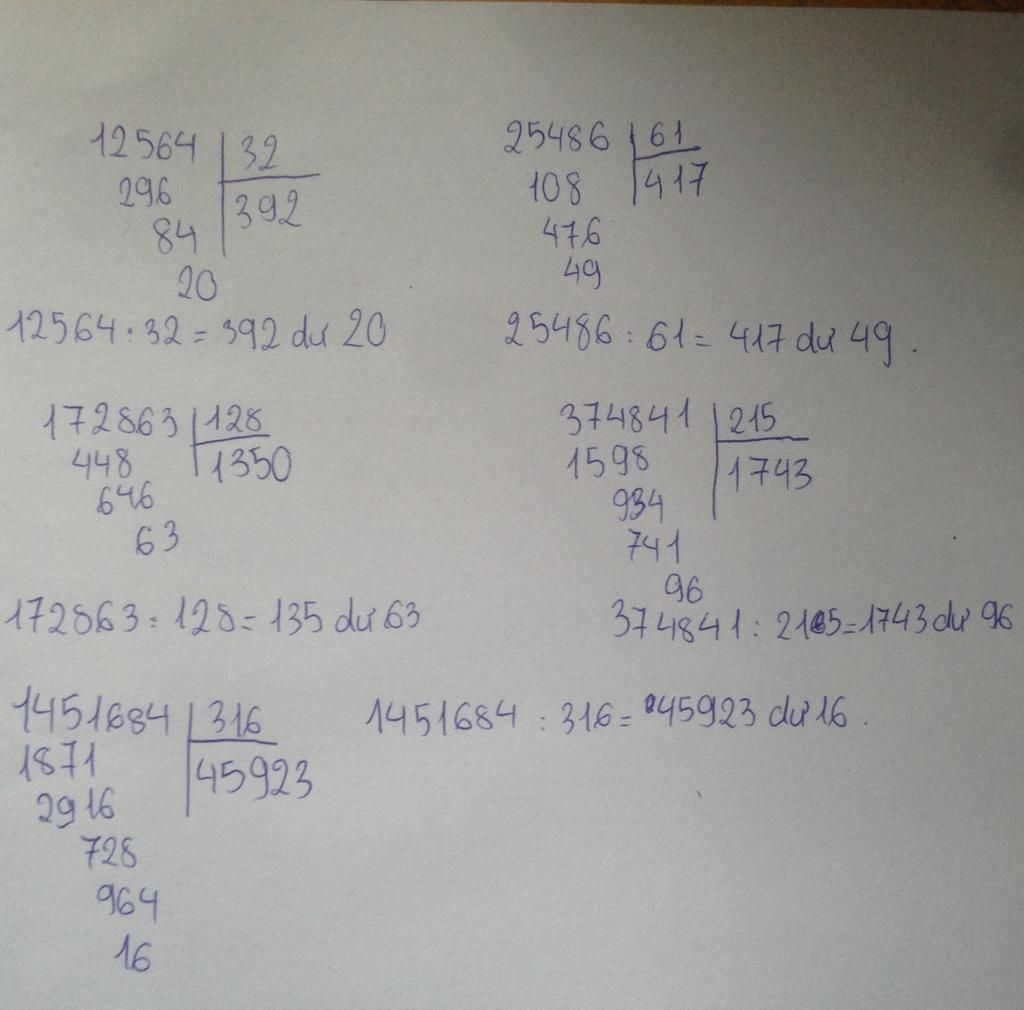 12564 | 32
296 | 392
84
20
12564 : 32 = 392 dư 20
25486 | 61
108 | 417
476
49
25486 : 61 = 417 dư 49 .
172863 | 128
448 | 1350
646
63
172863 : 128 = 135 dư 63
374841 | 215
1598 | 1743
934
741
96
374841 : 215 = 1743 dư 96
1451684 | 316
1871 | 45923
2916
728
964
16
1451684 : 316 = 45923 dư 16 .